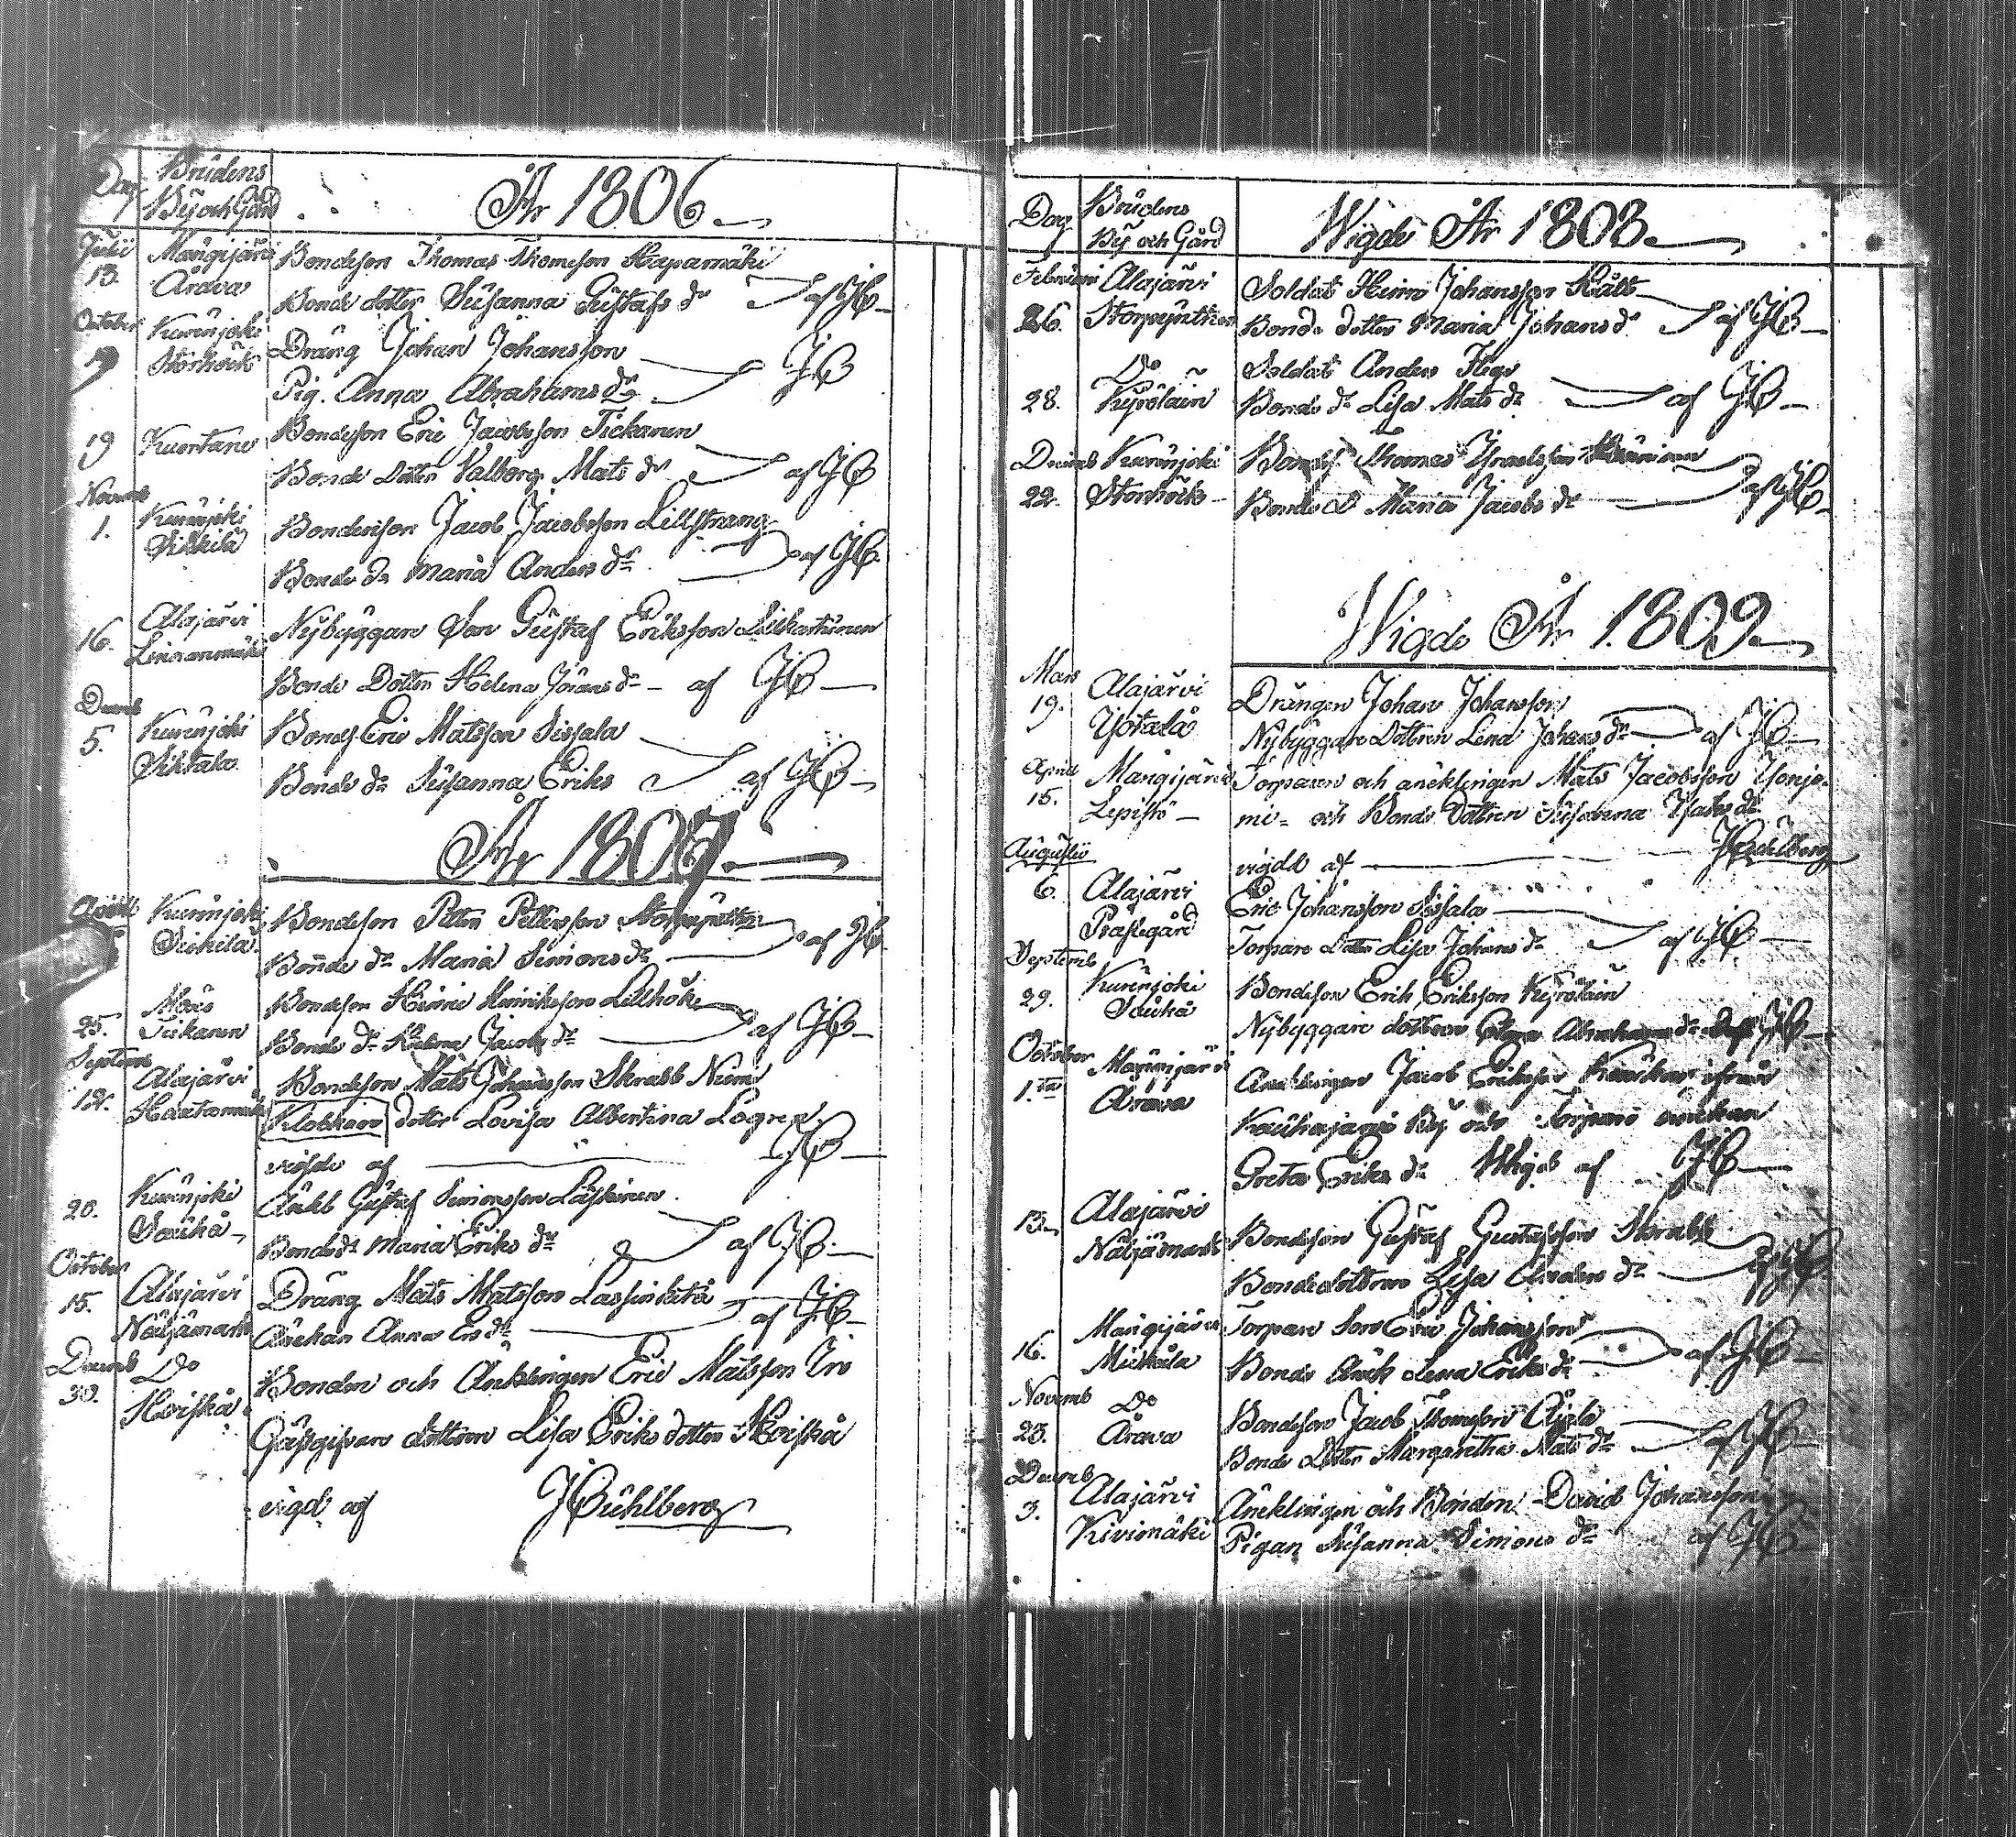 Dag Brüdens By och Gård
År 1806.
Julii 13. Mångijärvi Årava
Bondeson Thomas Thomeson Hapamäki
Bonde dotter Susanna Gustafs dr af JB
October 19 Kurenjoki Storhöck
Dräng Johan Johansson
Pig. Anna Abrahams dr JB
19 Kuortane
Bondeson Eric Jacobsson Tickanen
Bonde Dotter Valborg Mats dr af JB
Novemb 1. Kurenjoki Siikilä
Bondeson Jacob Jacobsson Lillstrang
Bonde dr Maria Anders dr af JB
16. Alajärvi Linnanmäki
Nybyggare Son Gustaf Eriksson
Bonde Dotter Helena Jörans dr af JB
Decemb 5. Kurenjoki
Bonds Eric Matsson Sissala
Bonde dr Susanna Eriks af JB
År 1807.
Kurenjoki Siikilä
Bondeson Petter Pettersson
Bonde dr Maria Simons dr af JB
25. Tickanen
Bondeson Hinric Hinriksson Lillhök
Bonde dr Helena Jacobs dr af JB
Septem 12. Alajärvi
Bondeson Mats Johansson Skrabb Niemi
Klockare dotter Lovisa Albertina Logren
vigde af JB
20. Kurenjoki Saukå
Änkl Gustaf Simonsson Laskinen
Bonde dr Maria Eriks dr af JB
October 15. Alajärvi Näljämark
Dräng Mats Matsson Lassinkita
Änckan Anna Ers dr af JB
Decemb 30. Do Hoiskå
Bonden och Äncklingen Eric Matsson
Gästgifvare dottren Lisa Eriks dotter Hoiskå
vigd af JBuhlberg
Dag Brüdens By och Gård
Wigde År 1808.
Februari 26. Alajärvi
Soldat Hinric Johansson Hält
Bonde dotter Maria Johans dr af JB
28. Do Kyrölain
Soldat Anders Flege
Bonde dr Lisa Mats dr af JB
Decemb 22. Kurenjoki Storhöck
Bondes Thomas
Bonde d Maria Jacobs dr af JB
Wigde År 1809.
Mars 19. Alajärvi Yötalå
Drängen Johan Johansson
Nybyggare Dottren Lena Johans dr af JB
April 15. Mångijärvi Lepistö
Torparen och äncklingen Mats Jacobsson Ylonje-
mi- och Bonde Dottren Susanna
vigde af JBuhlberg
Augustii 6. Alajärvi Prästegård
Eric Johansson Sissala
Torpare Dotter Lisa Johans dr af JB
Septemb 29. Kurenjoki Saukå
Bondeson Erik Eriksson Kyrölain
Nybyggare dottren Abrahams dr JB
October 1.ta Mångijärvi Årava
Äncklingen Jacob Eriksson ifrån
Kauhajarvi By och Torpare änckan
Greta Eriks dr Wigd af JB
13. Alajärvi Näljämark
Bondeson Gustaf Gustafsson Skrabb
Bondedottren Lisa Anders dr af JB
16. Mangijärvi Mickåla
Torpare Son Eric Johansson
Bonde Änck Lena Eriks dr af JB
Novemb 23. Do Årava
Bondeson Jacob Thomeson Ajala
Bonde Dotter Margaretha Mats dr af JB
Decemb 3. Alajärvi Kivimäki
Äncklingen och Bonden David Johansson
Pigan Susanna Simons dr af JB